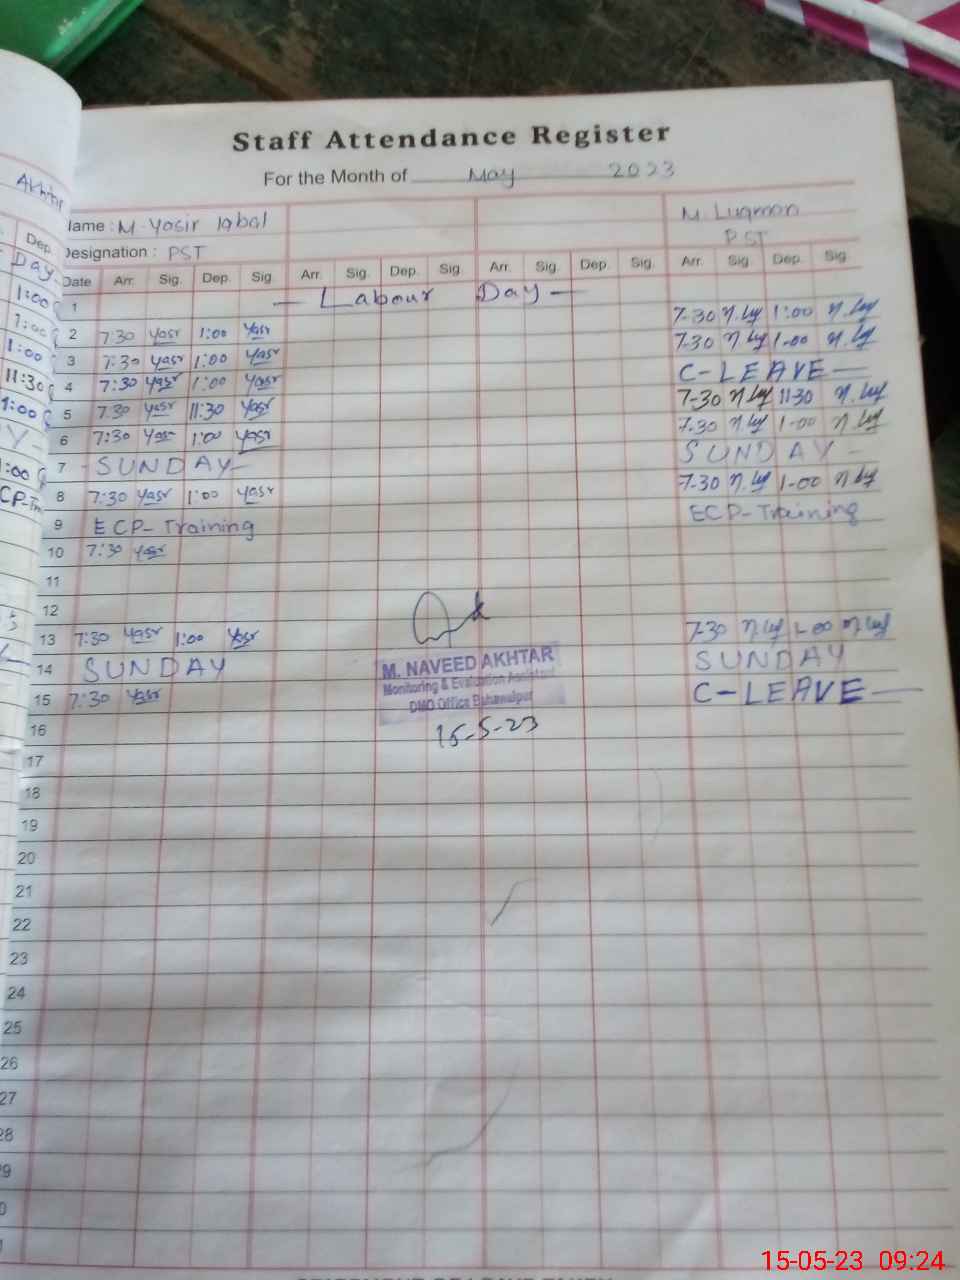 Staff Attendance Register
For the Month of May 2023
Akhtar
Name : M Yasir Iqbal M. Luqman
Designation : PST PST
Dep. Date Arr. Sig. Dep. Sig. Arr. Sig. Dep. Sig. Arr. Sig. Dep. Sig. Arr. Sig. Dep. Sig.
Day 1 — Labour Day —
1:00 2 7:30 Yasr 1:00 Yasr 7-30 1:00
1:00 3 7:30 Yasr 1:00 Yasr 7-30 1-00
1:00 4 7:30 Yasr 1:00 Yasr C-LEAVE —
11:30 5 7:30 Yasr 11:30 Yasr 7-30 11-30
1:00 6 7:30 Yasr 1:00 Yasr 7-30 1-00
7 - SUNDAY - SUNDAY -
1:00 8 7:30 Yasr 1:00 Yasr 7-30 1-00
9 ECP-Training ECP-Training
10 7:30 Yasr
11
12
13 7:30 Yasr 1:00 Yasr 7-30 1-00
14 SUNDAY SUNDAY
15 7:30 Yasr C-LEAVE —
M. NAVEED AKHTAR
Monitoring & Evaluation Assistant
DMO Office Bahawalpur
15-5-23
16
17
18
19
20
21
22
23
24
25
26
27
28
15-05-23 09:24